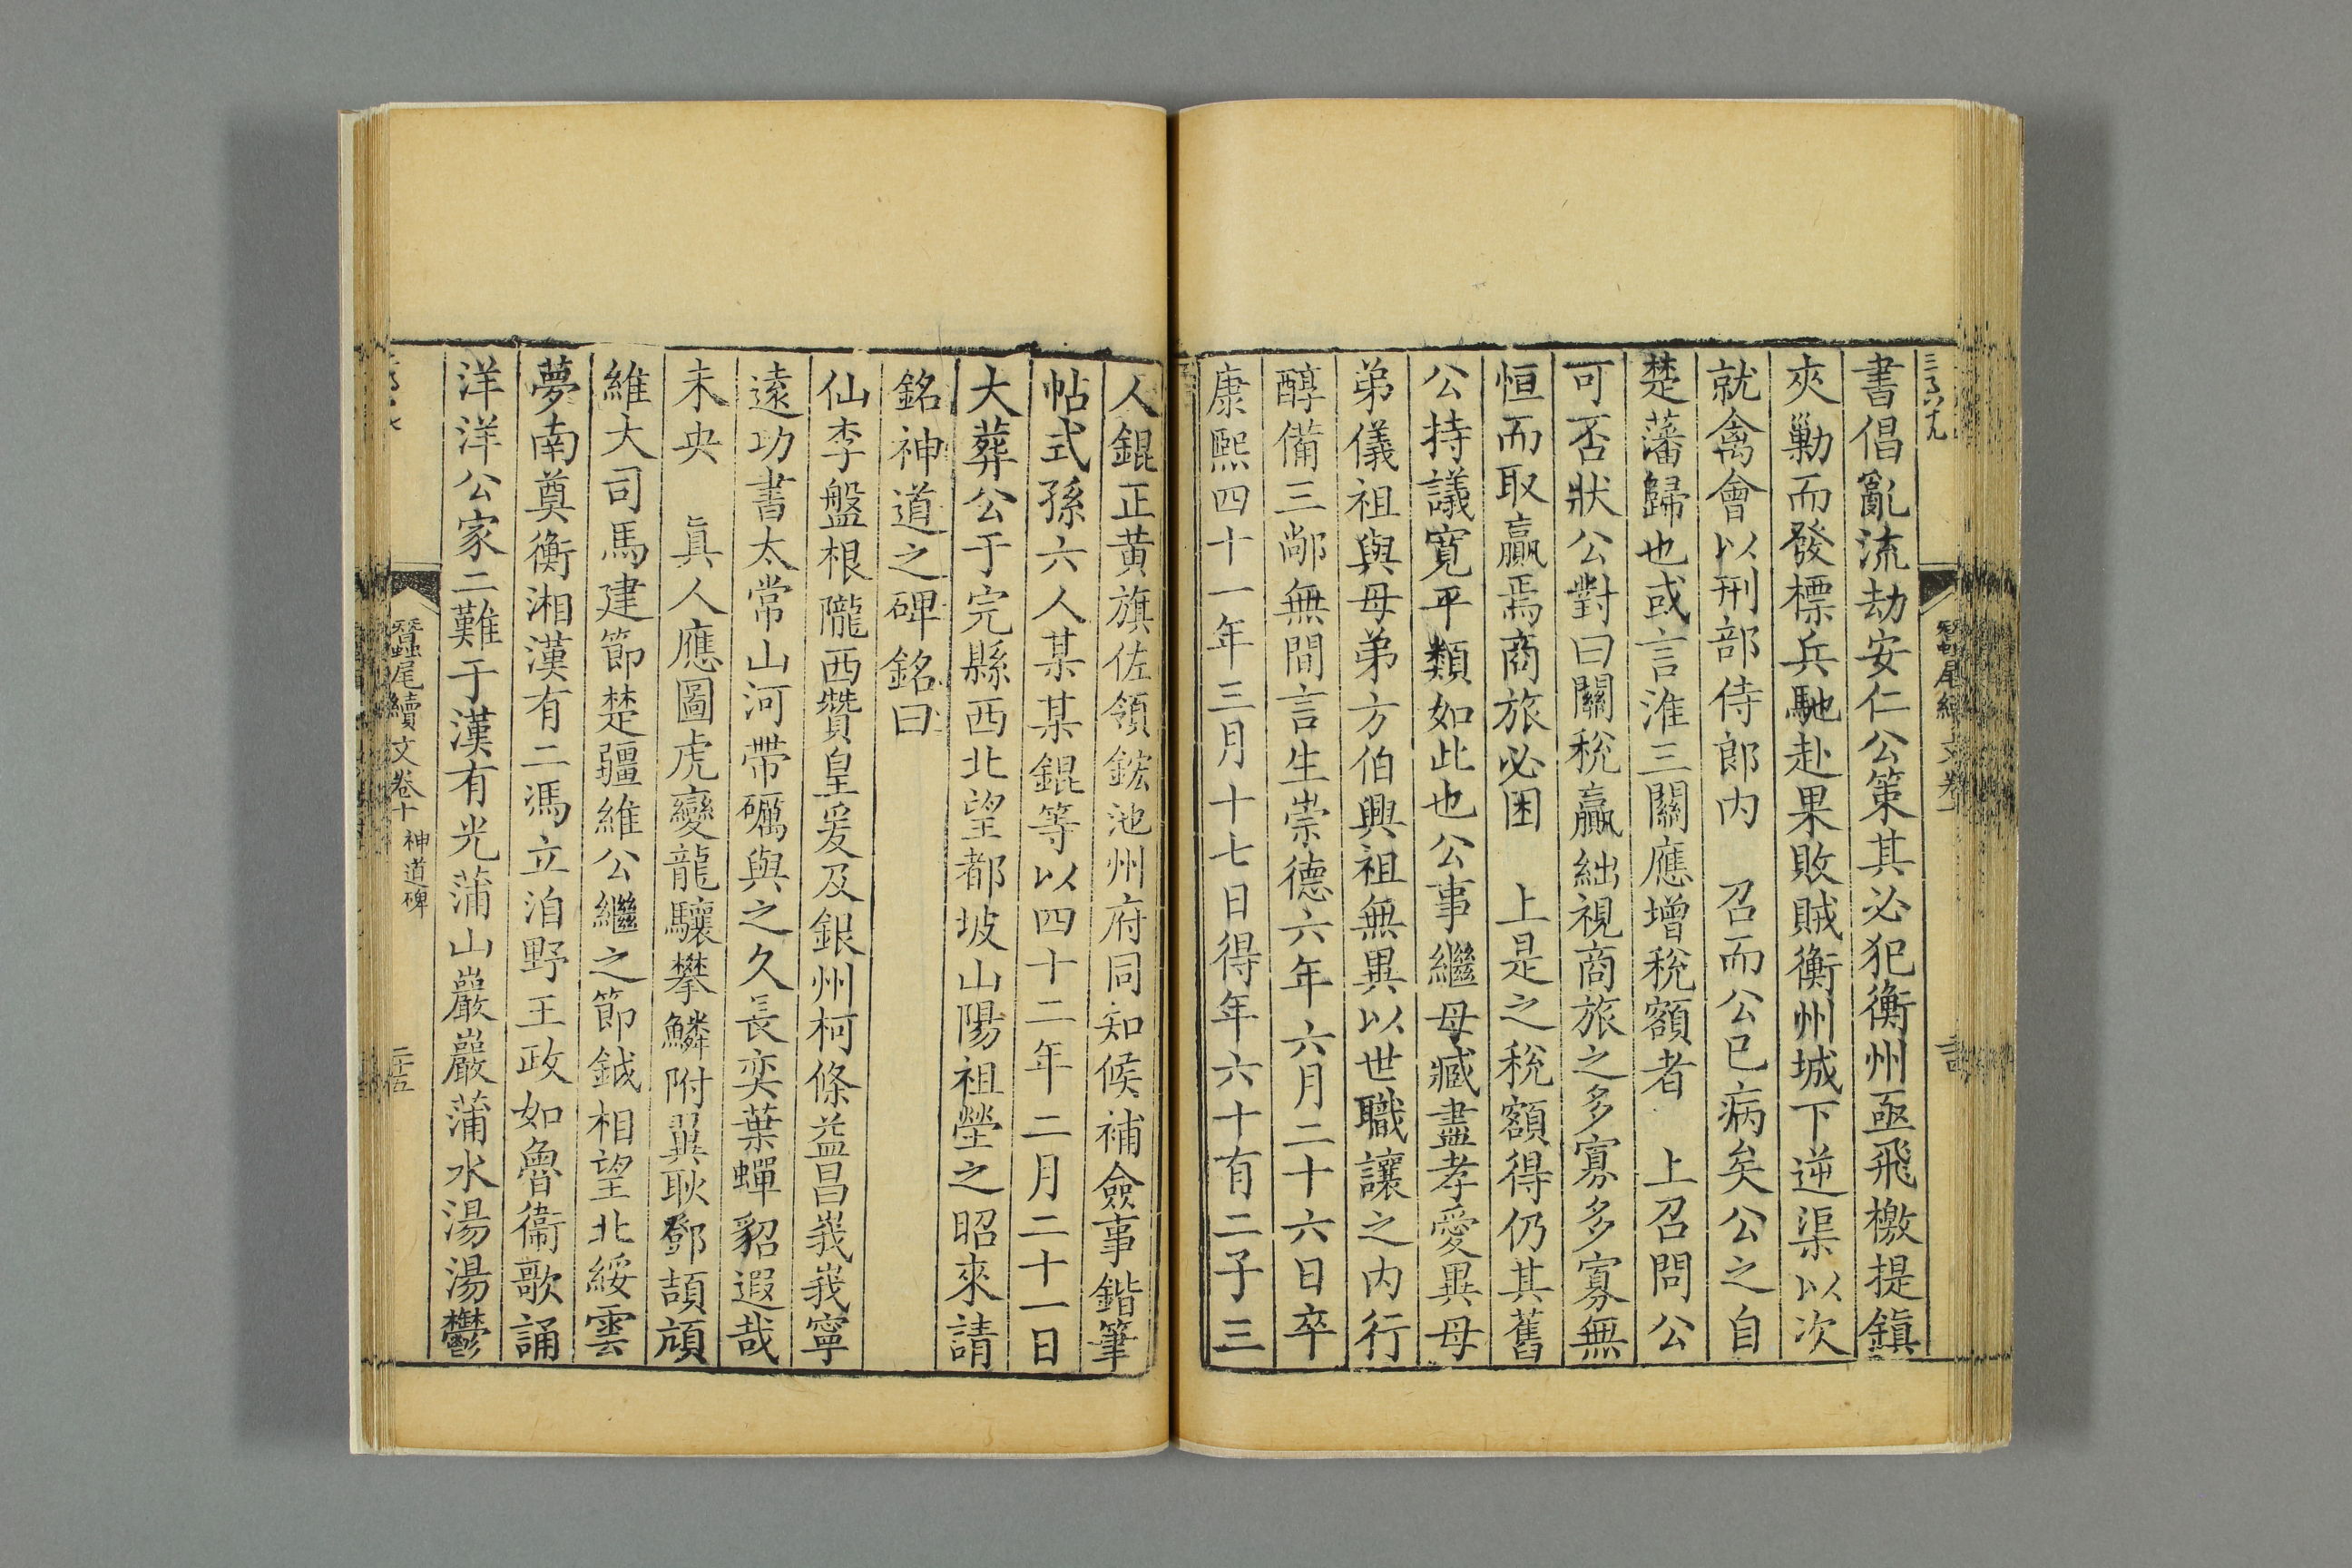 書倡亂流劫安仁公策其必犯衡州亟飛檄提鎮
夾勦而發標兵馳赴果敗賊衡州城下逆渠以次
就禽會以刑部侍郎内　召而公已病矣公之自
楚藩歸也或言淮三關應增稅額者　上召問公
可否狀公對曰關稅贏絀視商旅之多寡多寡無
恒而取贏焉商旅必困　上是之稅額得仍其舊
公持議寬平類如此也公事繼母臧盡孝愛異母
弟儀祖與母弟方伯興祖無異以世職讓之内行
醇備三鄰無間言生崇德六年六月二十六日卒
康熙四十一年三月十七日得年六十有二子三
人錕正黃旗佐領鋐池州府同知候補僉事鍇筆
帖式孫六人某某錕等以四十二年二月二十一日
大葬公于完縣西北望都坡山陽祖塋之昭來請
銘神道之碑銘曰
仙李盤根隴西贊皇爰及銀州柯條益昌峩峩寧
遠功書太常山河帶礪與之久長奕葉蟬貂遐哉
未央　眞人應圖虎變龍驤攀鱗附翼耿鄧頡頏
維大司馬建節楚疆維公繼之節鉞相望北綏雲
夢南奠衡湘漢有二馮立洎野王政如魯衞歌誦
洋洋公家二難于漢有光蒲山巖巖蒲水湯湯鬱
蠶尾續文卷十　神道碑　二十五